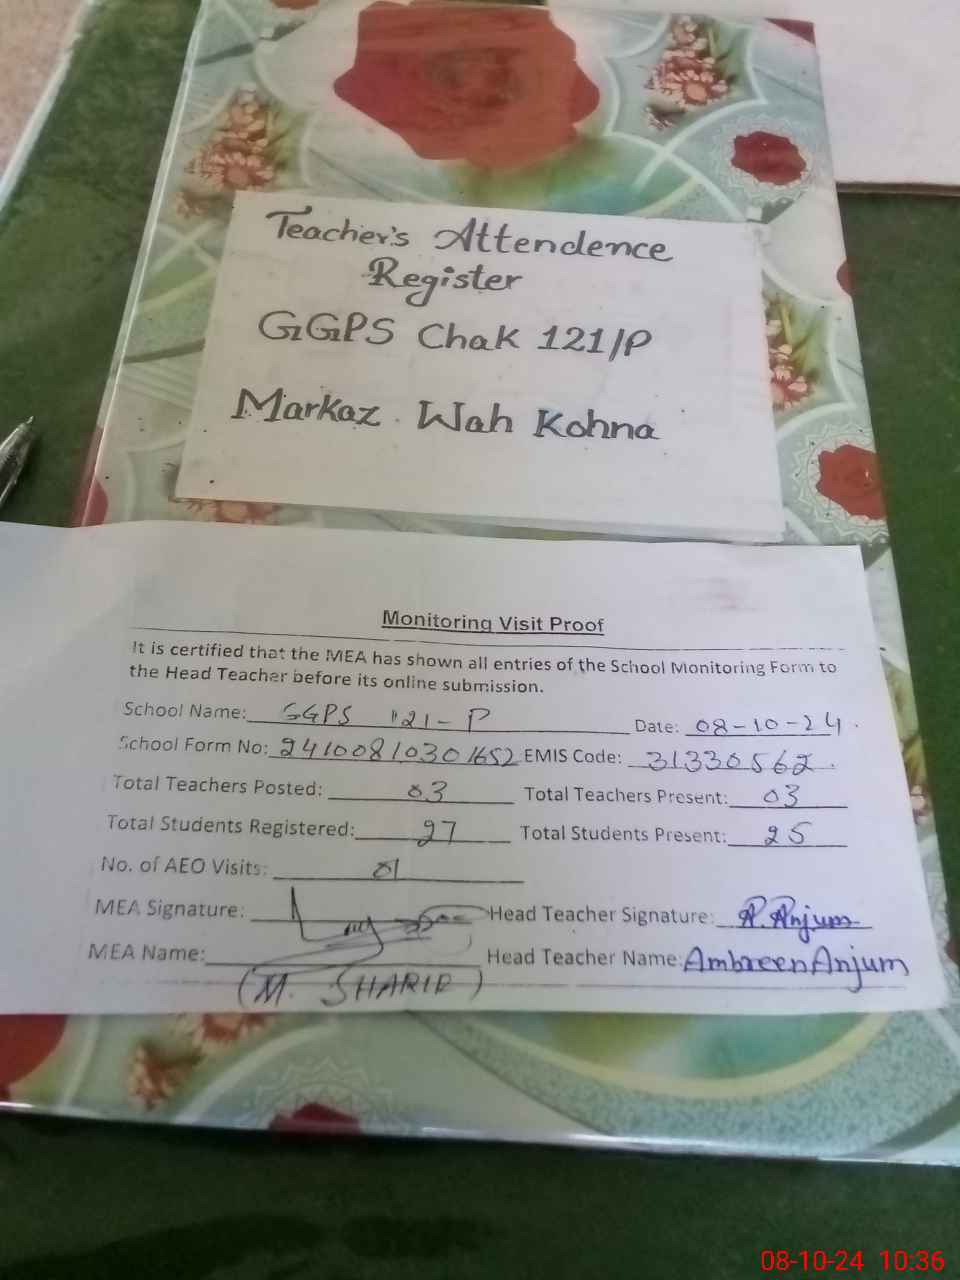 Teacher's Attendence
Register
GGPS Chak 121/P
Markaz Wah Kohna
Monitoring Visit Proof
It is certified that the MEA has shown all entries of the School Monitoring Form to
the Head Teacher before its online submission.
School Name: GGPS 121-P Date: 08-10-24
School Form No: 24100810301652 EMIS Code: 31330562
Total Teachers Posted: 03 Total Teachers Present: 03
Total Students Registered: 27 Total Students Present: 25
No. of AEO Visits: 01
MEA Signature: Head Teacher Signature: A. Anjum
MEA Name: Head Teacher Name: Ambreen Anjum
(M. SHARIF)
08-10-24 10:36